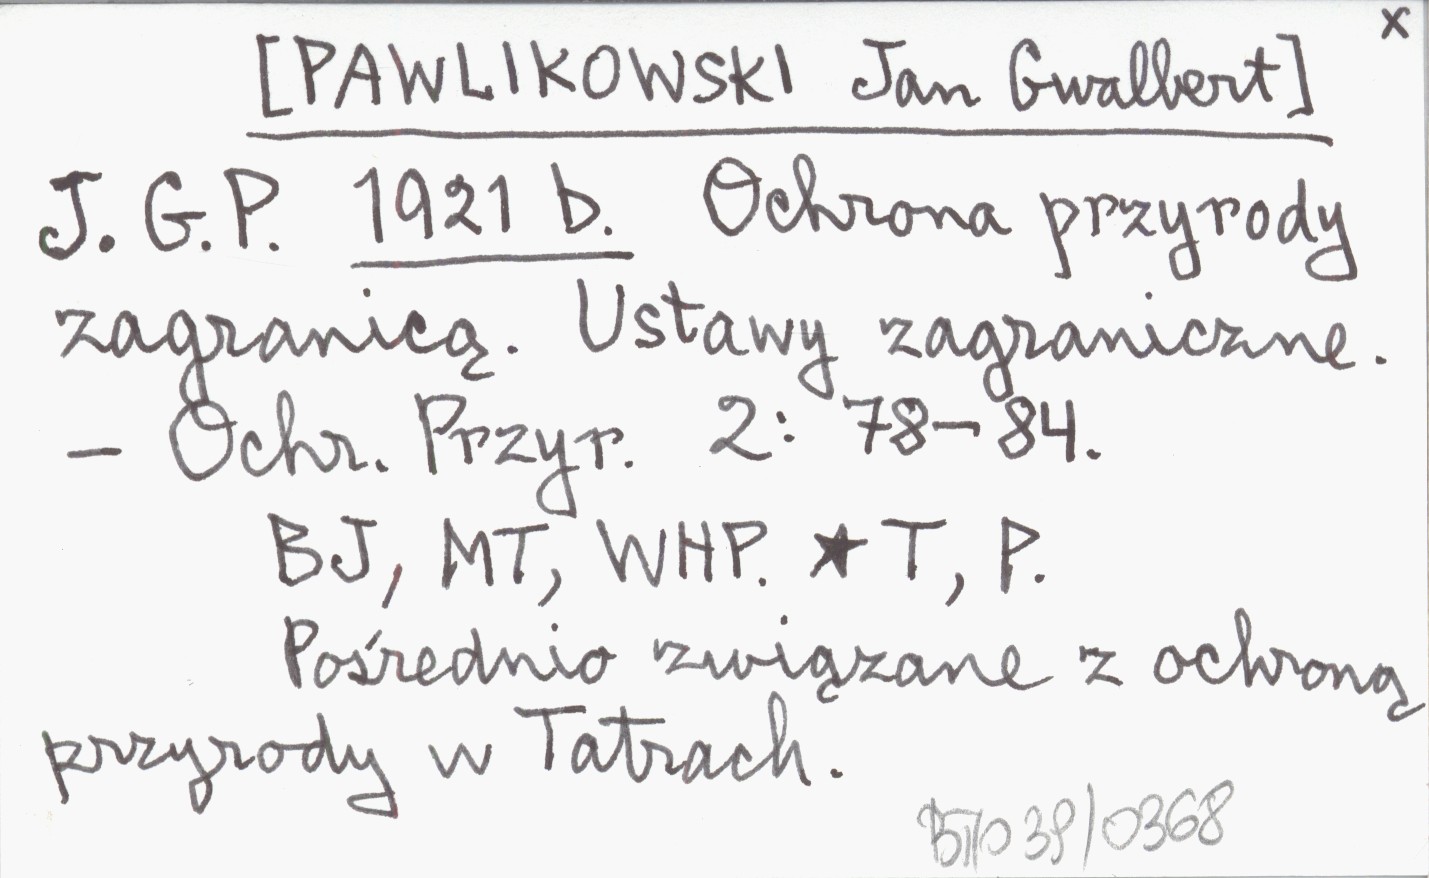 x
[PAWLIKOWSKI Jan Gwalbert]
J. G. P. 1921 b. Ochrona przyrody
zagranicą. Ustawy zagraniczne.
– Ochr. Przyr. 2: 78–84.
BJ, MT, WHP. ★ T, P.
Pośrednio związane z ochroną
przyrody w Tatrach.